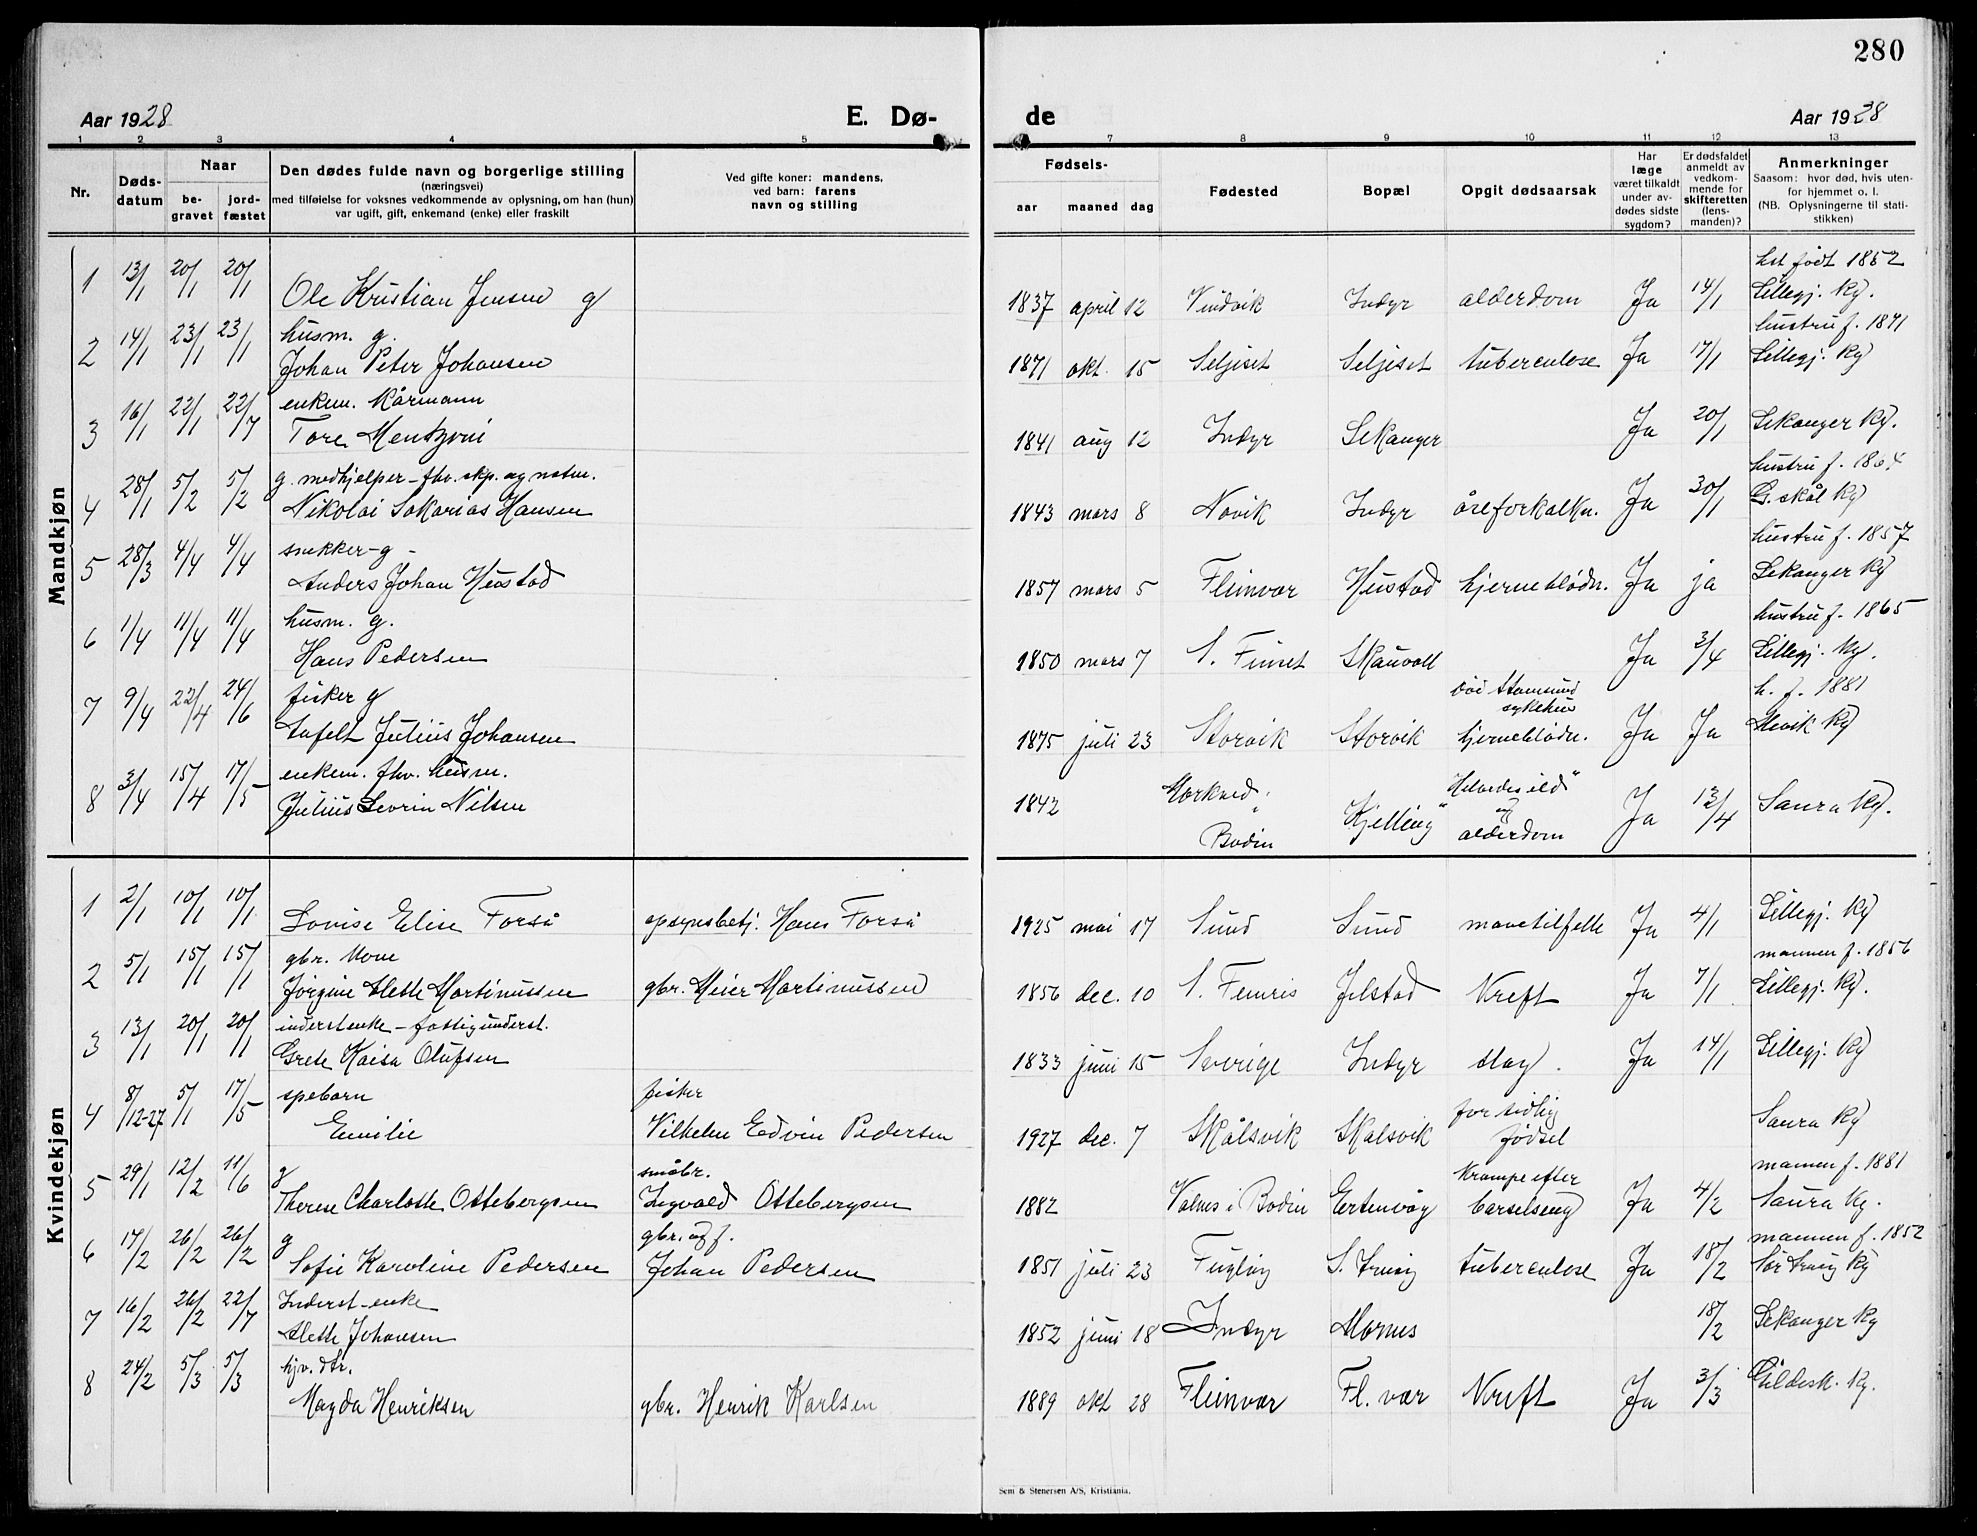 280
Aar 1928 E. Dø- de Aar 1928
1 2 3 4 5 7 8 9 10 11 12 13
Nr.
Døds-datum
Naar
be-gravet
jord-fæstet
Den dødes fulde navn og borgerlige stilling
(næringsvei)
med tilføielse for voksnes vedkommende av oplysning, om han (hun)
var ugift, gift, enkemand (enke) eller fraskilt
Ved gifte koner: mandens,
ved barn: farens
navn og stilling
Fødsels-
aar maaned dag
Fødested
Bopæl
Opgit dødsaarsak
Har
læge
været tilkaldt
under av-
dødes sidste
sygdom?
Er dødsfaldet
anmeldt av
vedkom-
mende for
skifteretten
(lens-
manden)?
Anmerkninger
Saasom: hvor død, hvis uten-
for hjemmet o. l.
(NB. Oplysningerne til stati-
stikken)
Mandkjøn
hst født 1852
1 13/1 20/1 20/1 Ole Kristian Jensen g 1837 april 12 Vindvik Indyr alderdom Ja 14/1 Lillegj. kg.
husm. g. hustru f. 1871
2 14/1 23/1 23/1 Johan Peter Johansen 1871 okt. 15 Seljeset Seljeset tuberculose Ja 17/1 Lillegj. kg
enkem. kårmann
3 16/1 22/1 22/7 Tore Mentzoni 1841 aug 12 Indyr Sekanger Ja 20/1 Sekanger kg.
g. medhjelper - fhv. skp. og notm. hustru f. 1864
4 28/1 5/2 5/2 Nikolai Sakarias Hansen 1843 mars 8 Novik Indyr åreforkalkn. Ja 30/1 G. skål kg
snekker - g - hustru f. 1857
5 28/3 4/4 4/4 Anders Johan Hustad 1857 mars 5 Fleinvær Hustad hjerneblødn. Ja ja Sekanger kg
husm. g. hustru f. 1865
6 1/4 11/4 11/4 Hans Pedersen 1850 mars 7 S. Finset Skauvoll Ja 3/4 Lillegj. kg.
fisker g død Stamsund sykehus h. f. 1881
7 9/4 22/4 24/6 Julius Johansen 1875 juli 23 Storvik Storvik hjerneblødn. Ja Ja Mevik kg
enkem. fhv. husm. "Helvedesild"
8 3/4 15/4 17/5 Julius Sevrin Nilsen 1842 Morkved i Bodin Kjelling og alderdom Ja 13/4 Saura kg.
Kvindekjøn
1 2/1 10/1 10/1 Lovise Elise Forså opsynsbetj. Hans Forså 1925 mai 17 Sund Sund mavetilfelle Ja 4/1 Lillegj. kg
gbr. kone mannen f. 1856
2 5/1 15/1 15/1 Jørgine Aleth Martinussen gbr. Meier Martinussen 1856 dec. 10 S. Femris Jelstad Kreft Ja 7/1 Lillegj. kg.
inderstenke - fattigunderst.
3 13/1 20/1 20/1 Grete Kaisa Olufsen 1833 juni 15 Sverige Indyr slag. Ja 14/1 Lillegj. kg
spebarn fisker for tidlig
4 8/12-27 5/1 17/5 Emilie Vilhelm Edvin Pedersen 1927 dec. 7 Skålsvik Skalsvik fødsel Saura kg
g småbr. Krampe efter mannen f. 1881
5 29/1 12/2 11/6 Therese Charlotte Ottebergsen Ingvald Ottebergsen 1882 Valnes i Bodin Ertenvåg barselseng Ja 4/2 Saura kg.
g gbr. og f. mannen f. 1852
6 17/2 26/2 26/2 Sofie Karoline Pedersen Johan Pedersen 1851 juli 23 Fugløy S. Arnøy tuberculose Ja 18/2 Sør Arnøy kg
Inderst-enke
7 16/2 26/2 22/7 Aleth Johansen 1852 juni 18 Indyr Mornes 18/2 Sekanger kg
hjv. dtr.
8 24/2 5/3 5/3 Magda Henriksen gbr. Henrik Karlsen 1889 okt 28 Fleinvær Fl. vær Kreft Ja 3/3 Gildesk. kg.
Sem & Stenersen A/S, Kristiania.